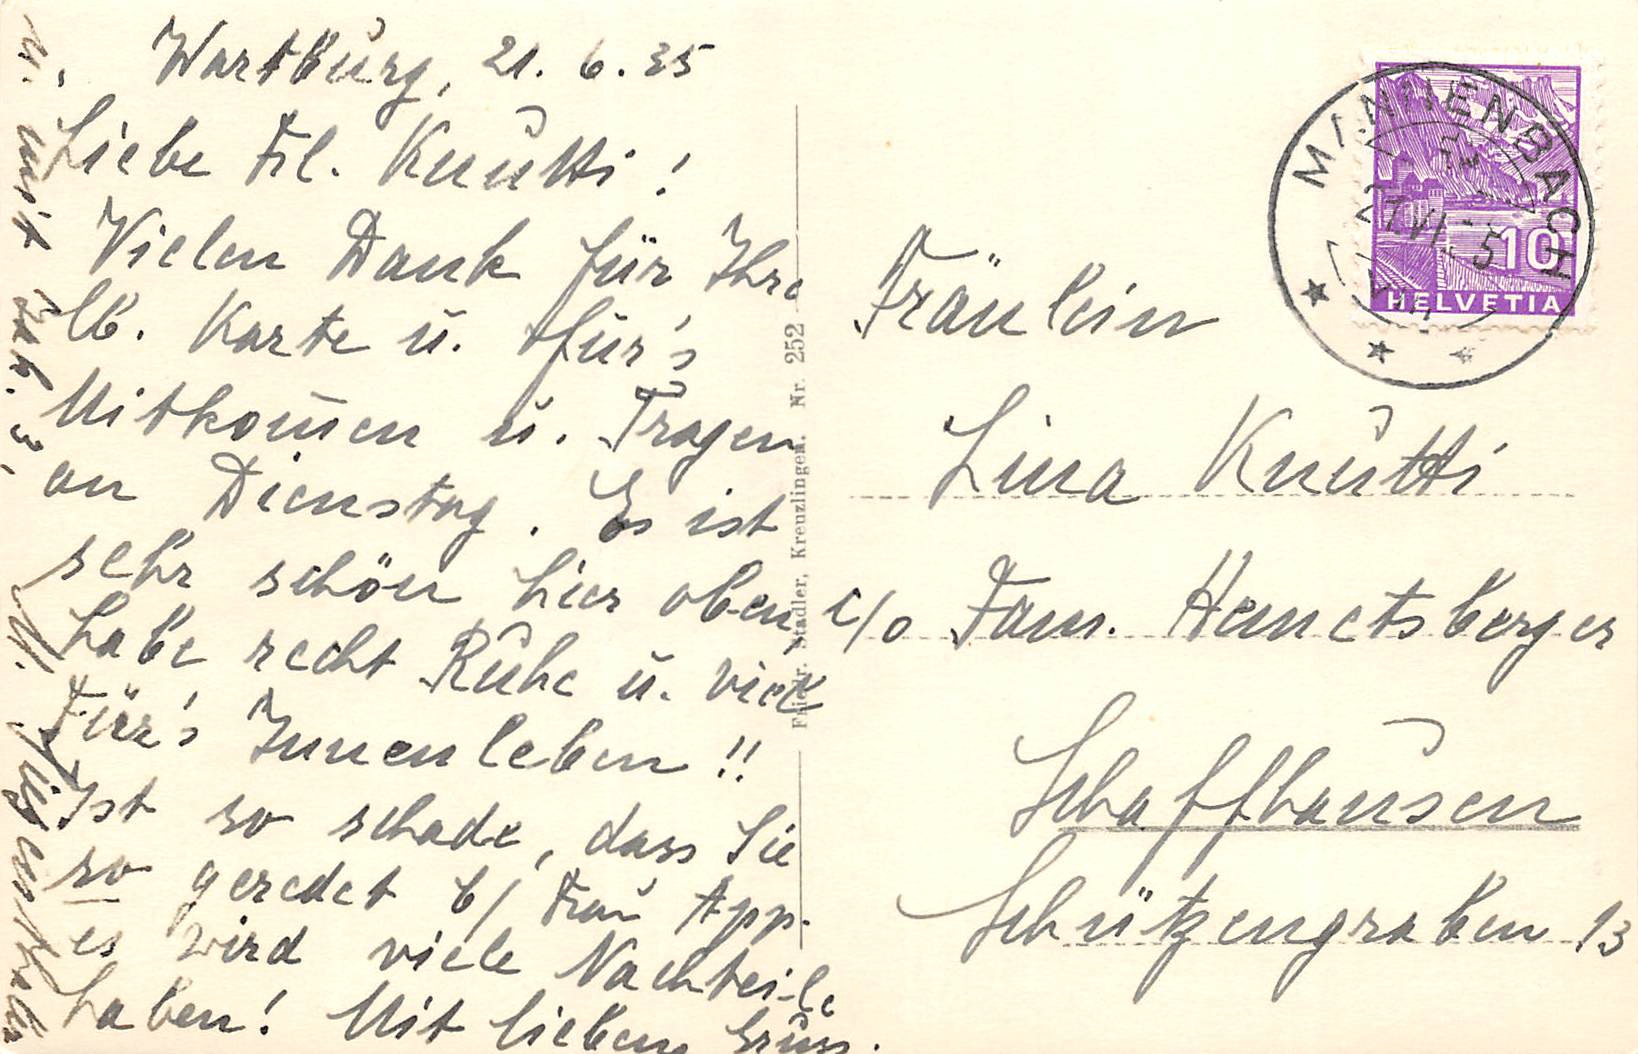 Wartburg, 21. 6. 35
Liebe Frl. Knutti!
Vielen Dank für Ihre
lb. Karte u. für's
Mitkom̅en u. Tragen
an Dienstag. Es ist
sehr schön hier oben
habe recht Ruhe u. viel
für's Innenleben!!
Ist so schade, dass Sie
so geredet b/ Frau App.
es wird viele Nachteile
haben! Mit lieben Gruss.
Friedr. Stadler, Kreuzlingen. Nr. 252
MANNENBACH
10
HELVETIA
Fräulein
Lina Knutti
c/o Fam. Hemetsberger
Schaffhausen
Schützengraben 13